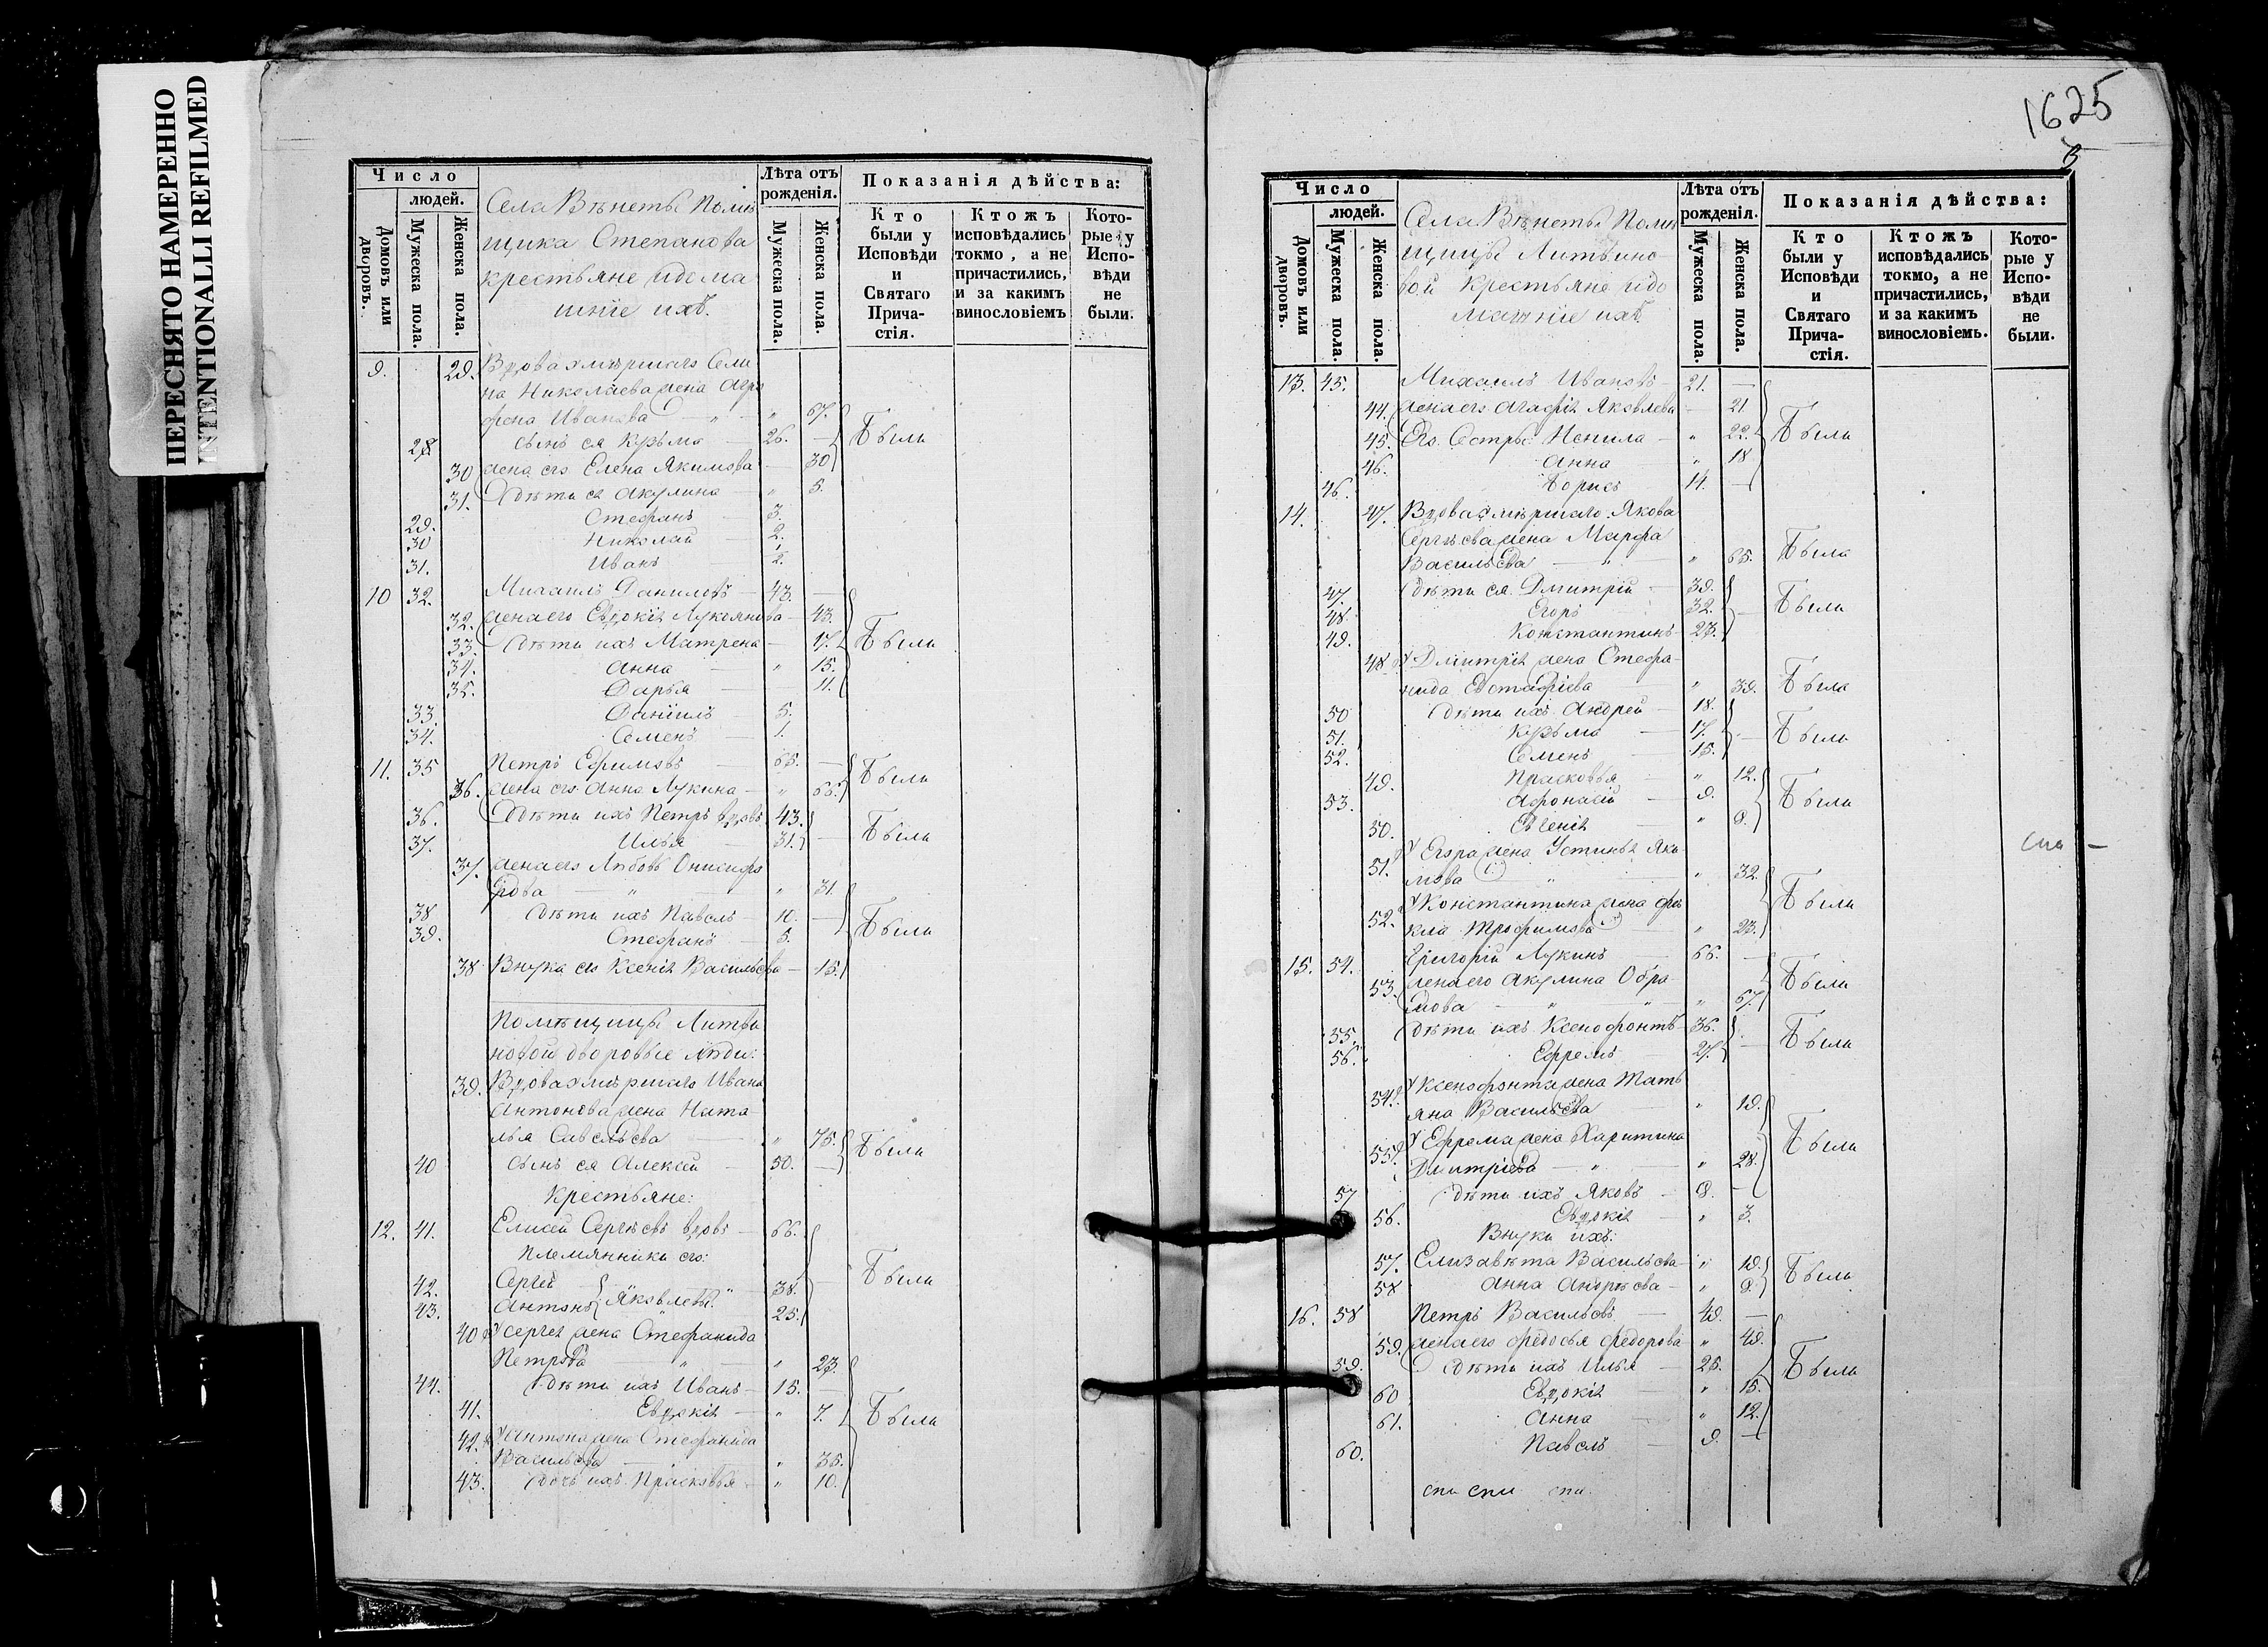 ПЕРЕСНЯТО НАМЕРЕННО
INTENTIONALLI REFILMED
Число
людей.
Домовъ или дворовъ.
Мужеска пола.
Женска пола.
Села Вѣнеты Помѣ
щика Степанова
крестьяне идома
шніе ихъ.
Лѣта отъ рожденія.
Мужеска пола.
Женска пола.
Показанія дѣйства:
Кто были у Исповѣди и Святаго Прича-стія.
Ктожъ исповѣдались токмо, а не причастились, и за какимъ винословіемъ
Кото-рые у Испо-вѣди не были.
9. 29. Вдова умѣршаго Сели
на Николаева жена Агра
фена Иванова " 67.
28 сынъ ея Кузьма 26. — Были
30 жена его Елена Якимова — 30
31. Дѣти ея Акулина " 5.
29. Стефанъ 3.
30 Николай 2.
31. Иванъ
10 32. Михаилъ Даниловъ — 43. —
32. жена его Евдокія Лукоянова — 43.
33. дѣти ихъ Матрена — 17. Были
34. Анна " 15.
35. Дарья — 11.
33. Даніилъ 5.
34. Семенъ 1.
11. 35 Петръ Ефимовъ — 65. —
36. жена его Анна Лукина — " 65. Были
36. Дѣти ихъ Петръ вдовъ 43.
37. Илья — 31. — Были
37. жена его Любовь Онисифо
рова — " " 31.
38 дѣти ихъ Павелъ — 10. —
39. Стефанъ — 5. Были
38 Внука его Ксенія Васильева — 15.
Помѣщицы Литви
новой дворовые люди:
39. Вдова умѣршаго Ивана
Антонова жена Ната
лья Савельева " 75. Были
40 сынъ ея Алексей 50. —
Крестьяне:
12. 41. Елисей Сергѣевъ вдовъ — 66.
Племянники его:
42. Сергей
43. Антонъ Яковлевы. " 38. — Были
25.
40 Сергея жена Стефанида
Петрова " " 23.
44. дѣти ихъ Иванъ — 15. —
41. Евдокія — " 7. Были
42. Антона жена Стефанида
Васильева " 35.
43. дочь ихъ Прасковья — " 10.
1625
Число
людей.
Домовъ или дворовъ.
Мужеска пола.
Женска пола.
Села Вѣнеты Помѣ
щицы Литвино-
вой Крестьяне идо
машніе ихъ
Лѣта отъ рожденія.
Мужеска пола.
Женска пола.
Показанія дѣйства:
Кто были у Исповѣди и Святаго Прича-стія.
Ктожъ исповѣдались токмо, а не причастились, и за какимъ винословіемъ.
Кото-рые у Испо-вѣди не были.
13. 45. Михаилъ Ивановъ — 21. —
44. жена его Агафія Яковлева — 21
45. Его Сестры: Ненила — " 22. Были
46. Анна — " 18
46. Борисъ 14. —
14. 47. Вдова умѣршаго Якова
Сергѣева жена Марфа
Васильева " 65. Была
47. дѣти ея Дмитрій — 39.
48. Егоръ 32. — Были
49. Константинъ — 23.
48 Дмитрія жена Стефа-
нида Евстафіева " 39. Была
50 дѣти ихъ Андрей — 18.
51. Кузьма — 17. — Были
52. Семенъ — 15.
49. Прасковья — " 12.
53. Афонасій — 9. Были
50. Евгенія " 8.
51. Егора жена Устинья Яки
мова " " 32.
52. Константина жена Фе Были
кла Трофимова " 23.
15. 54. Григорій Лукинъ — 66. —
53. жена его Акулина Обра Были
мова " " " 67.
55. дѣти ихъ Ксенофонтъ — 36.
56. Ефремъ — 27. — Были
54. Ксенофонта жена Тать
яна Васильева " 19.
55. Ефрема жена Харитина Были
Дмитріева — " — " 28.
57 дѣти ихъ Яковъ — 8. —
56. Евдокія " 3.
Внуки ихъ:
57. Елизавѣта Васильева — " 19.
58 Анна Андрѣева — " 9. Были
16. 58 Петръ Васильевъ — 49. —
59. жена его Федосья Федорова " 49.
59. дѣти ихъ Илья — 25. Были
60 Евдокія " 15.
61. Анна " 12.
60. Павелъ 9. —